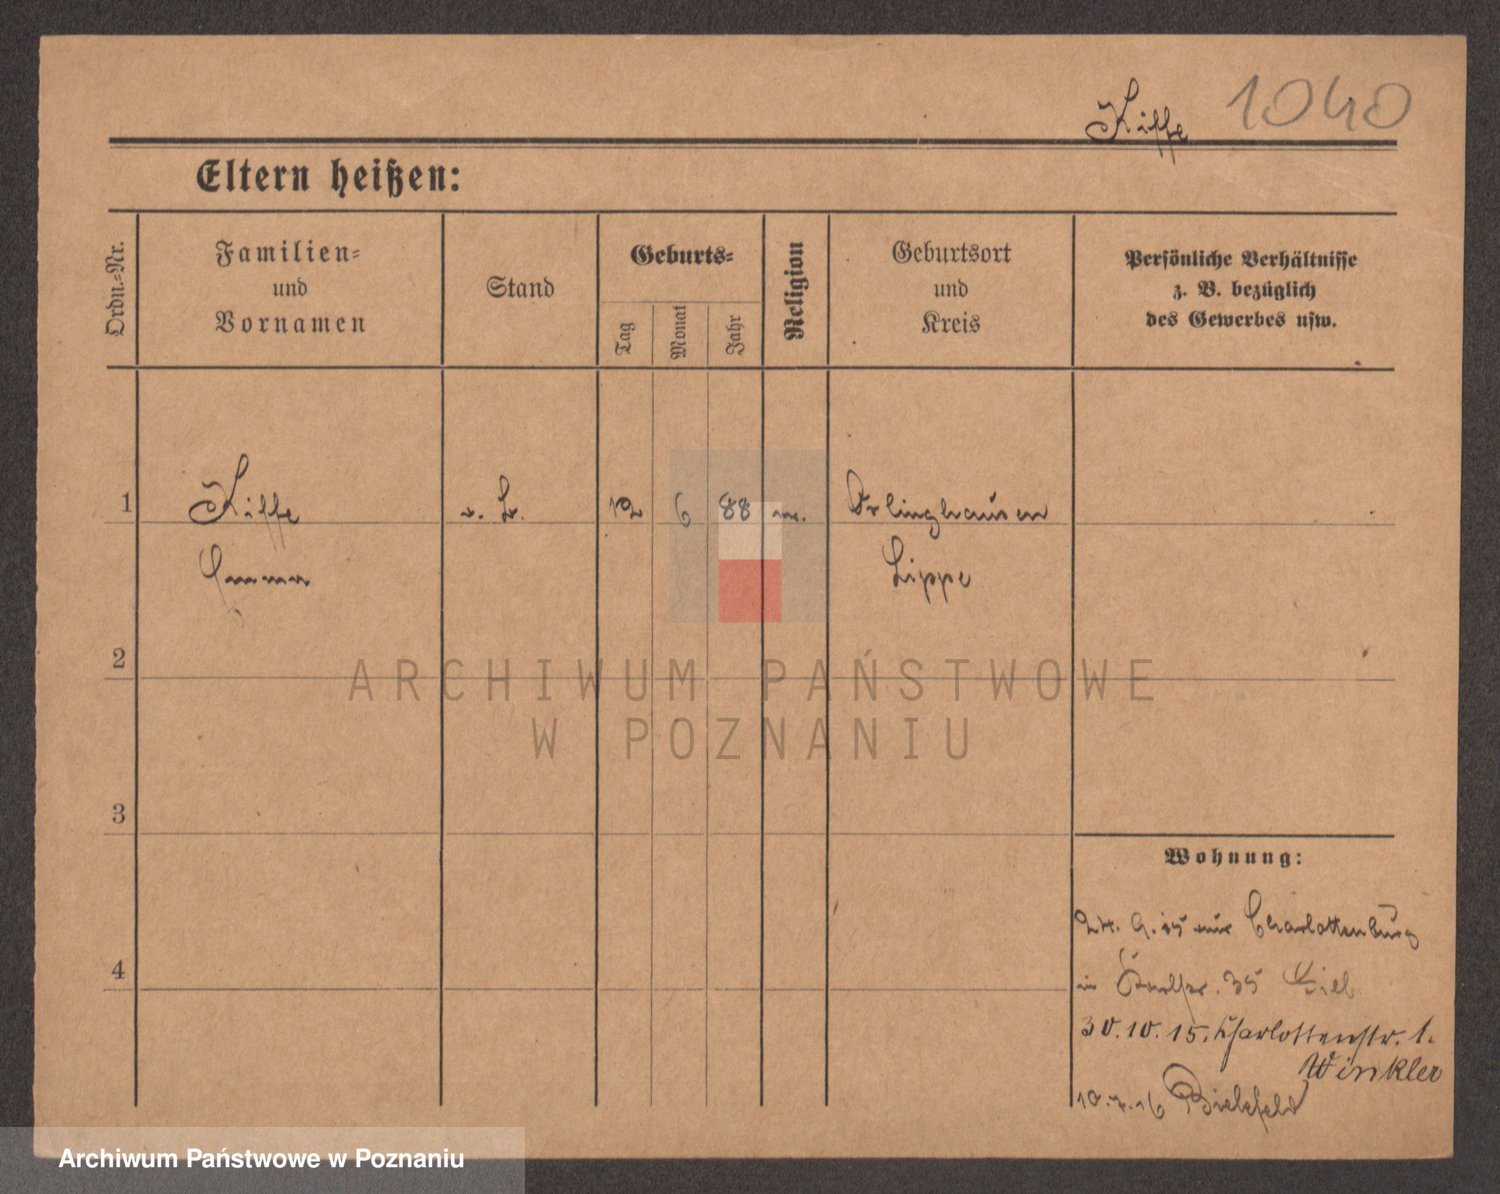 Kiffe 1040
Eltern heißen:
Ordn.-Nr.
Familien-
und
Vornamen
Stand
Geburts-
Tag
Monat
Jahr
Religion
Geburtsort
und
Kreis
Persönliche Verhältnisse
z. B. bezüglich
des Gewerbes usw.
1 Kiffe 12 6 88 Örlinghausen
Emma Lippe
2
3
4
Wohnung:
24. 9. 15 aus Charlottenburg
in 35
30.10.15. Charlottenstr. 1.
Winkler
16 Bielefeld
ARCHIWUM PAŃSTWOWE
W POZNANIU
Archiwum Państwowe w Poznaniu